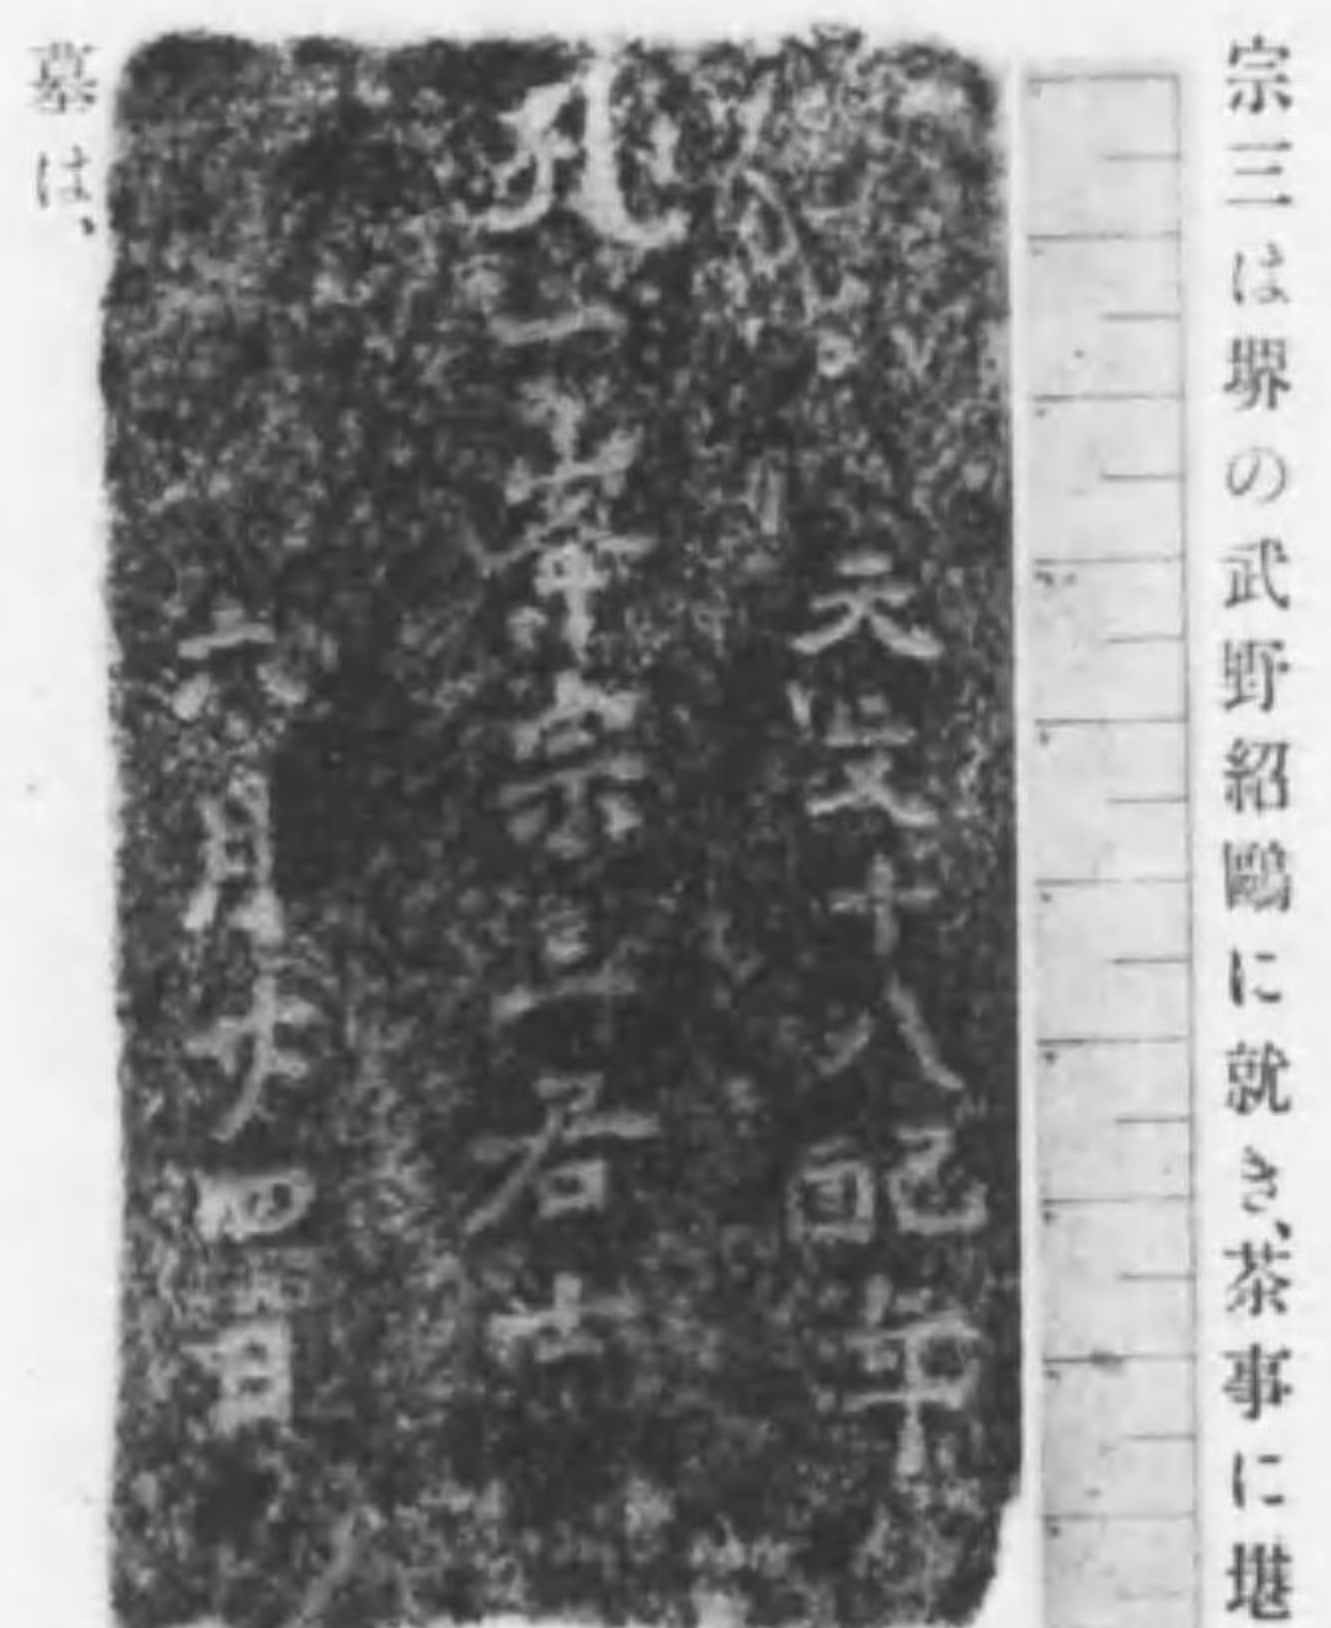 宗三は堺の武野紹鷗に就き、茶事に堪
天文十八配年
一峯宗三居士
六月廿四日
墓は、